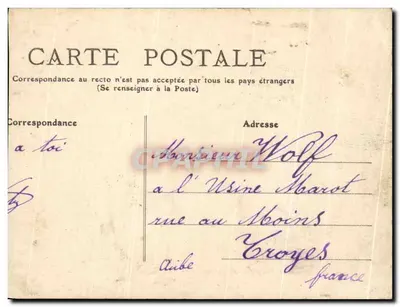 CARTE POSTALE
Correspondance au recto n'est pas acceptée par tous les pays étrangers
(Se renseigner à la Poste)
Correspondance
Adresse
a toi
Monsieur Wolf
a l'Usine Marot
rue au Moins
Troyes
Aube
france